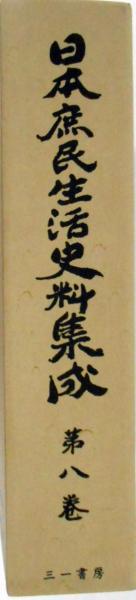 日本庶民生活史料集成
第八巻
三一書房